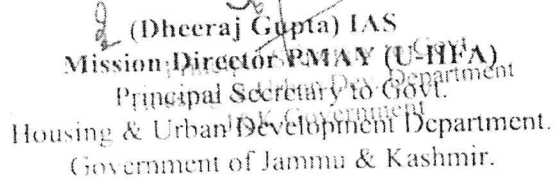 (Dheeraj Gupta) IAS
Mission Director PMAY (U-HFA)
Principal Secretary to Govt.
Housing & Urban Development Department.
Government of Jammu & Kashmir.